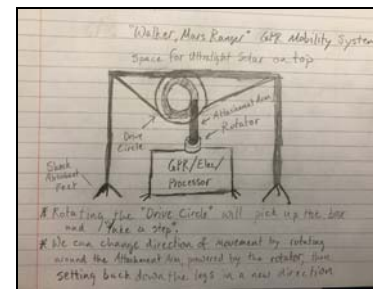 "Walker, Mars Ranger" GPR Mobility System
Space for Ultralight Solar on top
Attachment Arm
Drive
Circle
Rotator
Shock
Absorbent
Feet
GPR/Elec/
Processor
* Rotating the "Drive Circle" will pick up the box
and "Take a step".
* We can change direction of movement by rotating
around the Attachment Arm, powered by the rotator, then
setting back down the legs in a new direction